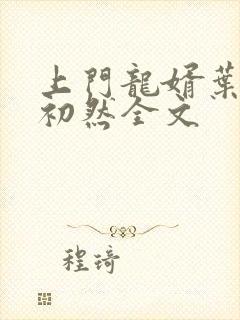 上門龍婿葉
初然全文
程琦